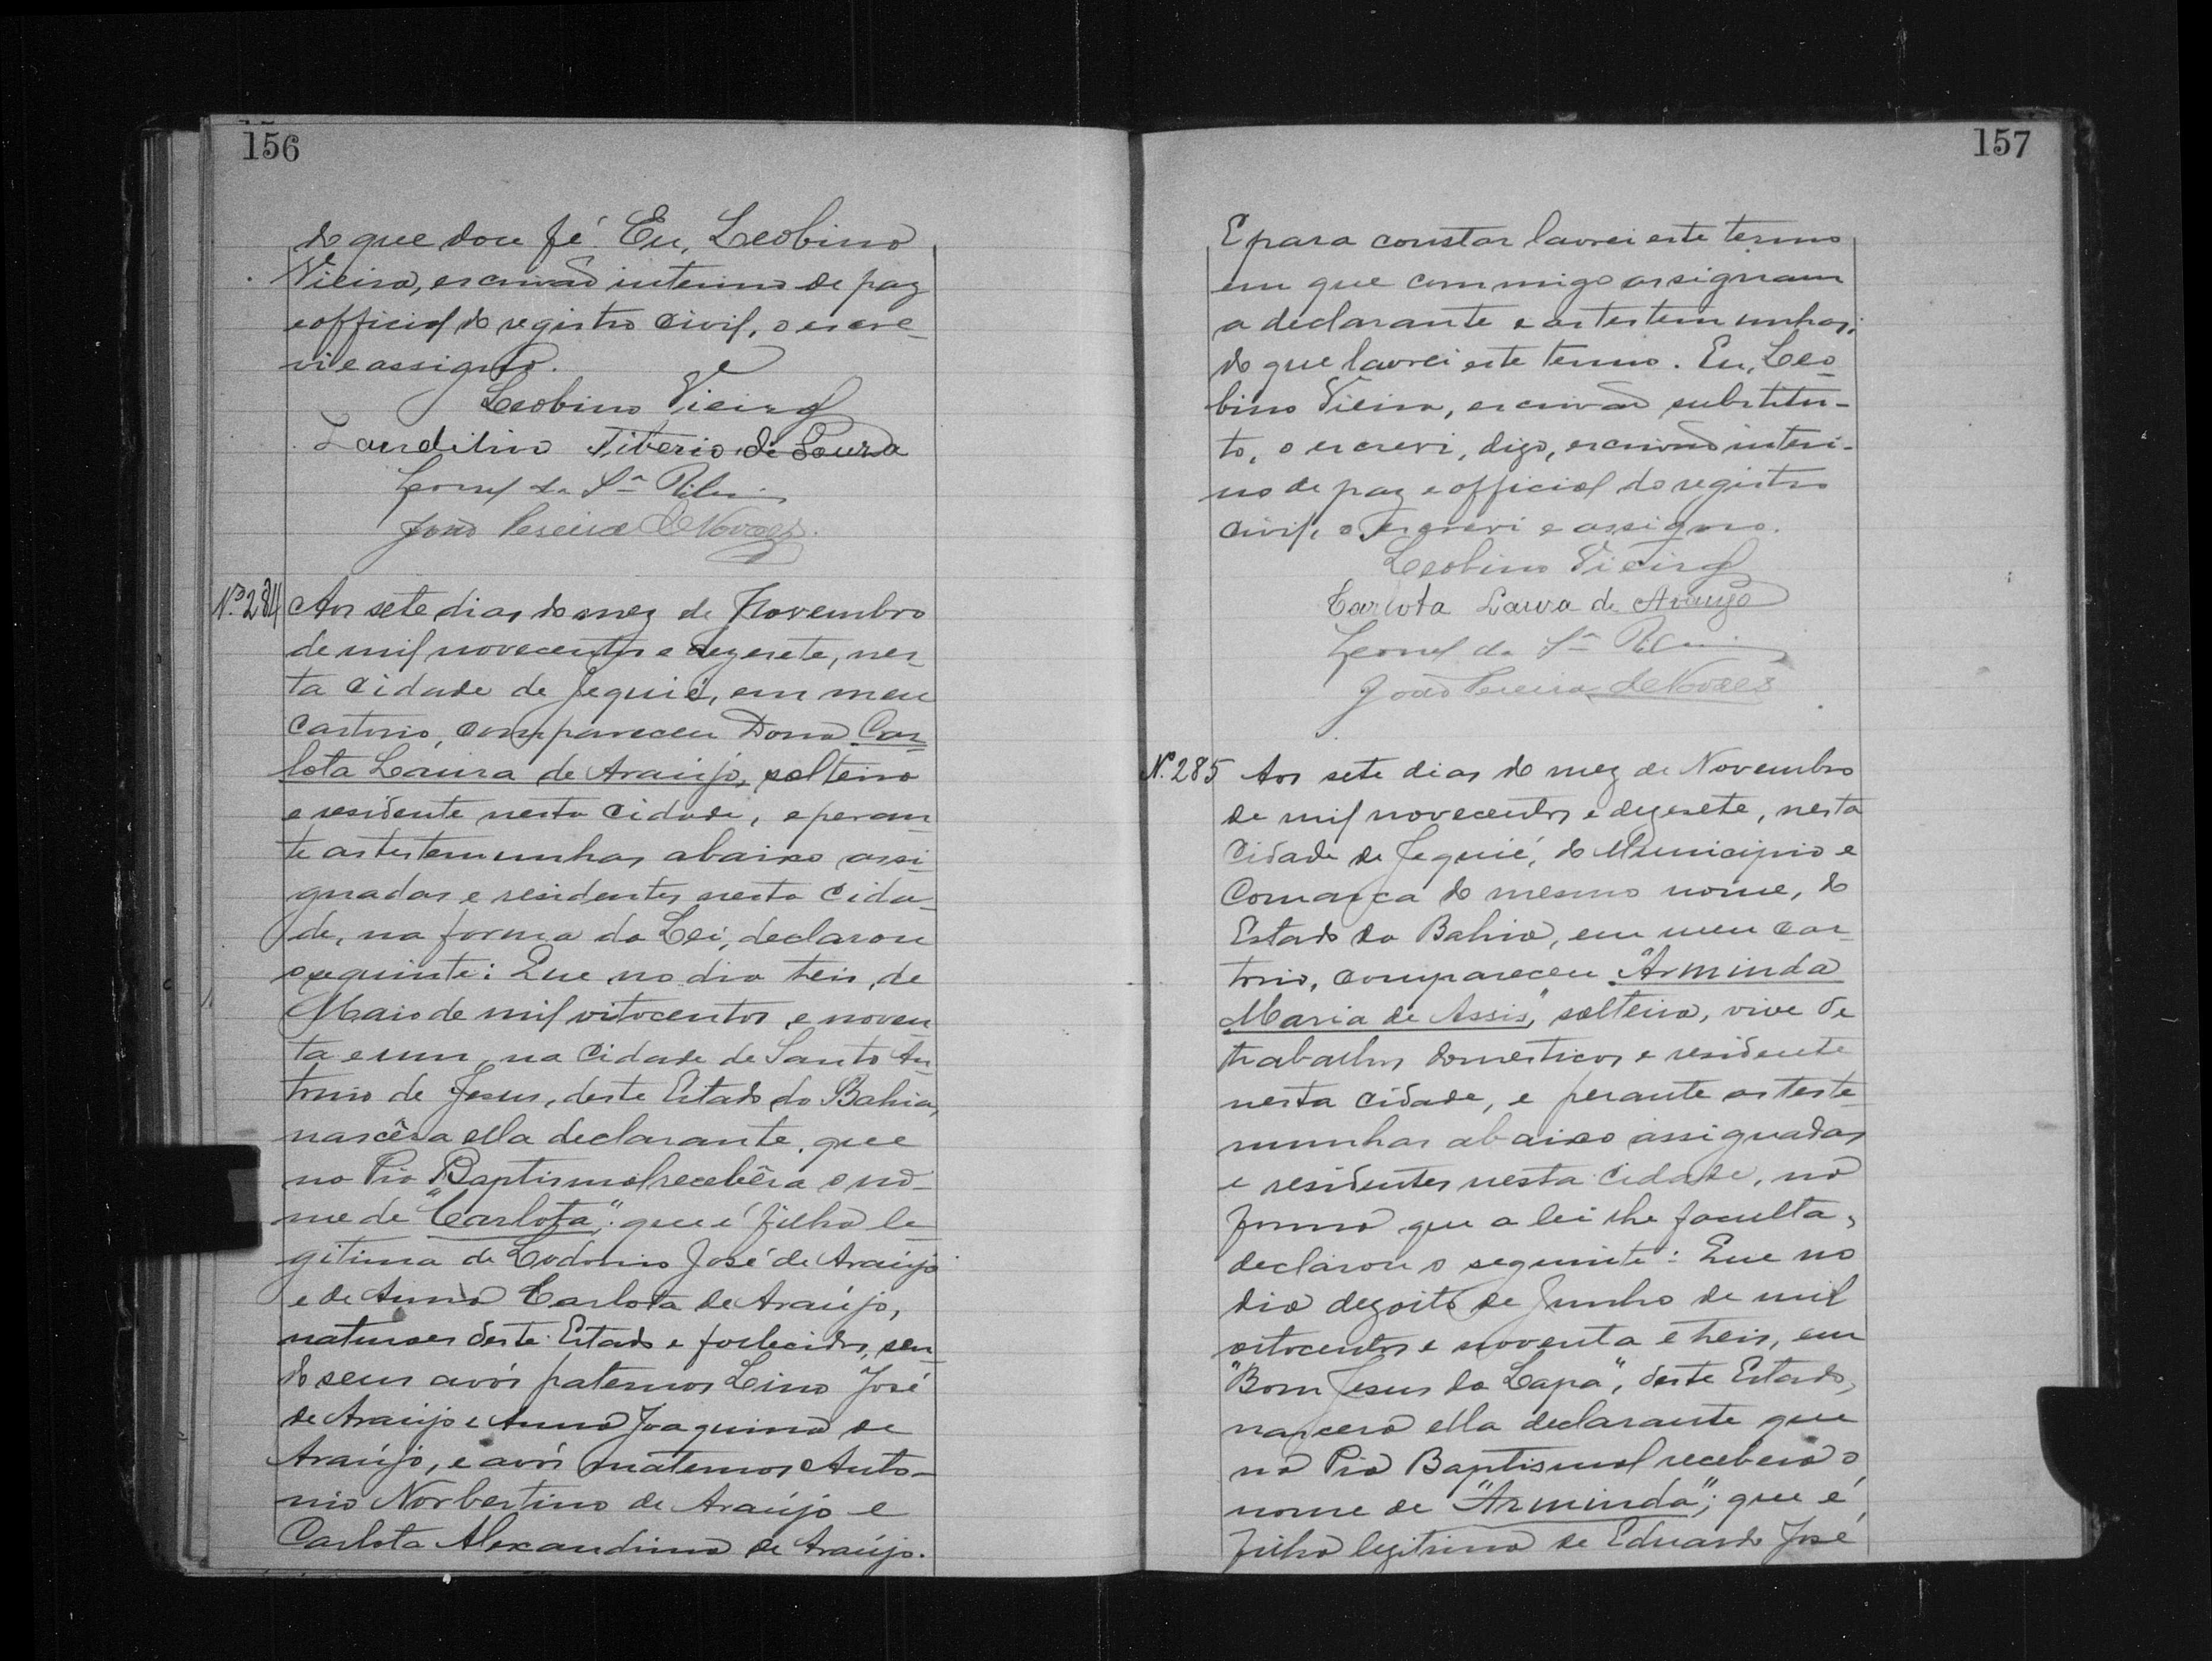 156
do que dou fé. Eu, Leobino
Vieira, escrivão interino de paz
e official do registro civil, o escre-
vi e assigno.
Leobino Vieira
Landilino Tiberio de Souza
Leonel da Sª
João Pereira de Novaes
Nº 284 Aos sete dias do mez de Novembro
de mil novecentos e dezesete, nes-
ta cidade de Jequié, em meu
cartorio, compareceu Dona Car-
lota Laura de Araújo, solteira
e residente nesta cidade, e peran-
te as testemunhas abaixo assi-
gnadas e residentes nesta cida-
de, na forma da Lei, declarou
o seguinte: Que no dia treis, de
Maio de mil oitocentos e noven-
ta e um, na cidade de Santo An-
tonio de Jesus, deste Estado da Bahia,
nascêra ella declarante, que
na Pia Baptismal recebêra o no-
me de "Carlota"; que é filha le-
gitima de José de Araújo
e de Anna Carlota de Araújo,
naturaes deste Estado e fallecidos, sen-
do seus avós paternos Lino José
de Araújo e Anna Joaquina de
Araújo, e avós maternos Anto-
nio Norbertino de Araújo e
Carlota Alexandrina de Araújo.
157
E para constar lavrei este termo
em que commigo assignam
a declarante e as testemunhas;
do que lavrei este termo. Eu, Leo-
bino Vieira, escrivão substitu-
to, o escrevi, digo, escrivão interi-
no de paz e official do registro
civil, o escrevi e assigno.
Leobino Vieira
Carlota Laura de Araujo
Leonel da Sª
João Pereira de Novaes
Nº 285 Aos sete dias do mez de Novembro
de mil novecentos e dezesete, nesta
Cidade de Jequié, do Municipio e
Comarca do mesmo nome, do
Estado da Bahia, em meu car-
torio, compareceu "Arminda
Maria de Assis", solteira, vive de
trabalhos domesticos e residente
nesta cidade, e perante as teste-
munhas abaixo assignadas
e residentes nesta cidade, na
forma que a lei lhe faculta,
declarou o seguinte: Que no
dia dezoito de Junho de mil
oitocentos e noventa e treis, em
"Bom Jesus da Lapa", deste Estado,
nascera ella declarante que
na Pia Baptismal recebera o
nome de "Arminda"; que é
filha legitima de Eduardo José